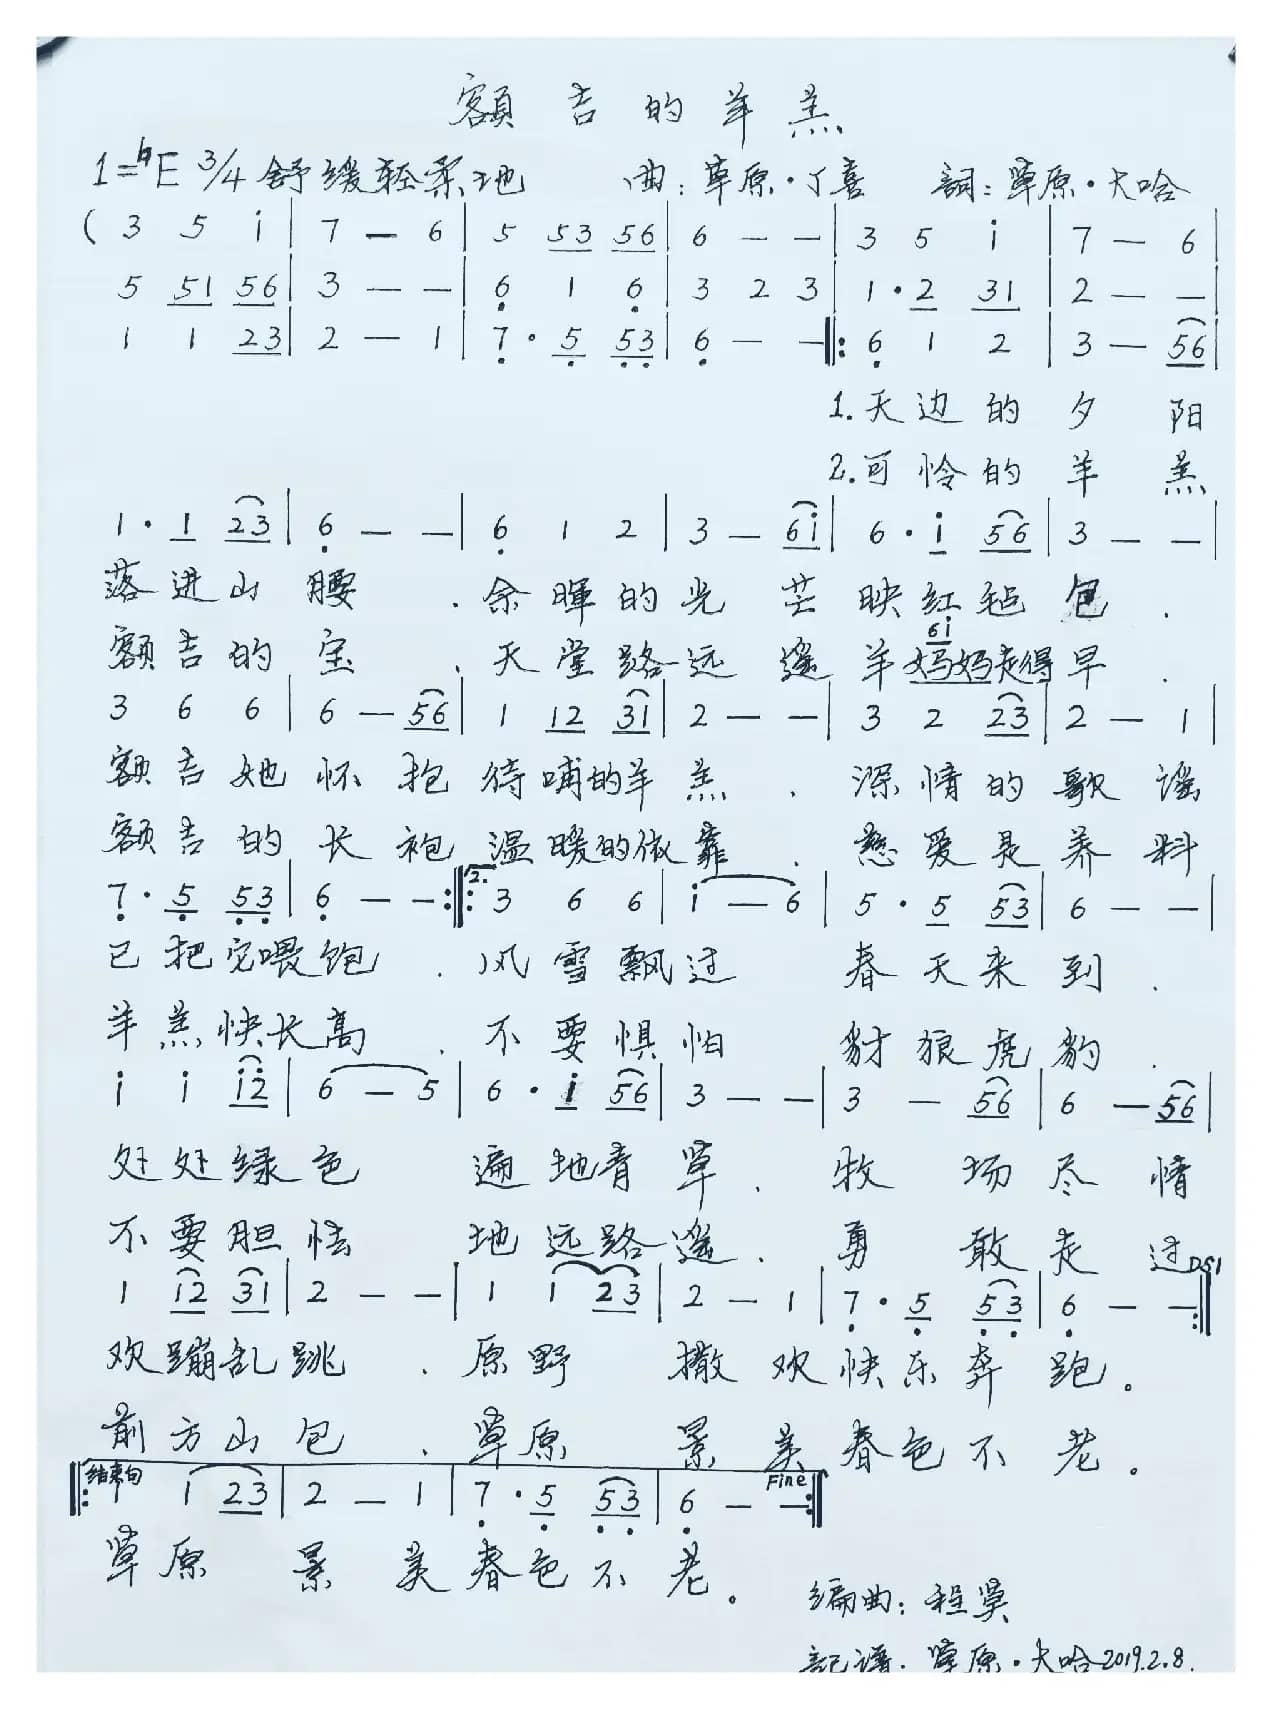 額吉的羊羔
1=♮E 3/4 舒缓轻柔地 曲:草原·丫喜 詞:草原·大哈
( 3 5 i | 7 — 6 | 5 53 56 | 6 — — | 3 5 i | 7 — 6 |
5 51 56 | 3 — — | 6 1 6 | 3 2 3 | 1·2 31 | 2 — — |
1 1 23 | 2 — 1 | 7·5 53 | 6 — — ‖: 6 1 2 | 3 — 56 |
1.天边的夕阳
2.可怜的羊羔
1·1 23 | 6 — — | 6 1 2 | 3 — 6i | 6·i 56 | 3 — — |
落进山腰.余暉的光芒映红毡包.
6i
额吉的宝.天堂路远遥羊妈妈走得早.
3 6 6 | 6 — 56 | 1 12 31 | 2 — — | 3 2 23 | 2 — 1 |
额吉她怀抱待哺的羊羔.深情的歌谣
额吉的长袍温暖的依靠.慈爱是养料
7·5 53 | 6 — — :‖: 2. 3 6 6 | i — 6 | 5·5 53 | 6 — — |
已把它喂饱.风雪飘过春天来到.
羊羔快长高.不要惧怕豺狼虎豹.
i i i2 | 6 — 5 | 6·i 56 | 3 — — | 3 — 56 | 6 — 56 |
处处绿色遍地青草.牧场尽情
不要胆怯地远路遥.勇敢走过DS1
1 12 31 | 2 — — | 1 1 23 | 2 — 1 | 7·5 53 | 6 — — :‖
欢蹦乱跳.原野撒欢快乐奔跑。
前方山包.草原景美春色不老。
‖: 结束句 1 1 23 | 2 — 1 | 7·5 53 | 6 — — Fine :‖
草原景美春色不老。
编曲:程昊
記谱.草原·大哈2019.2.8.